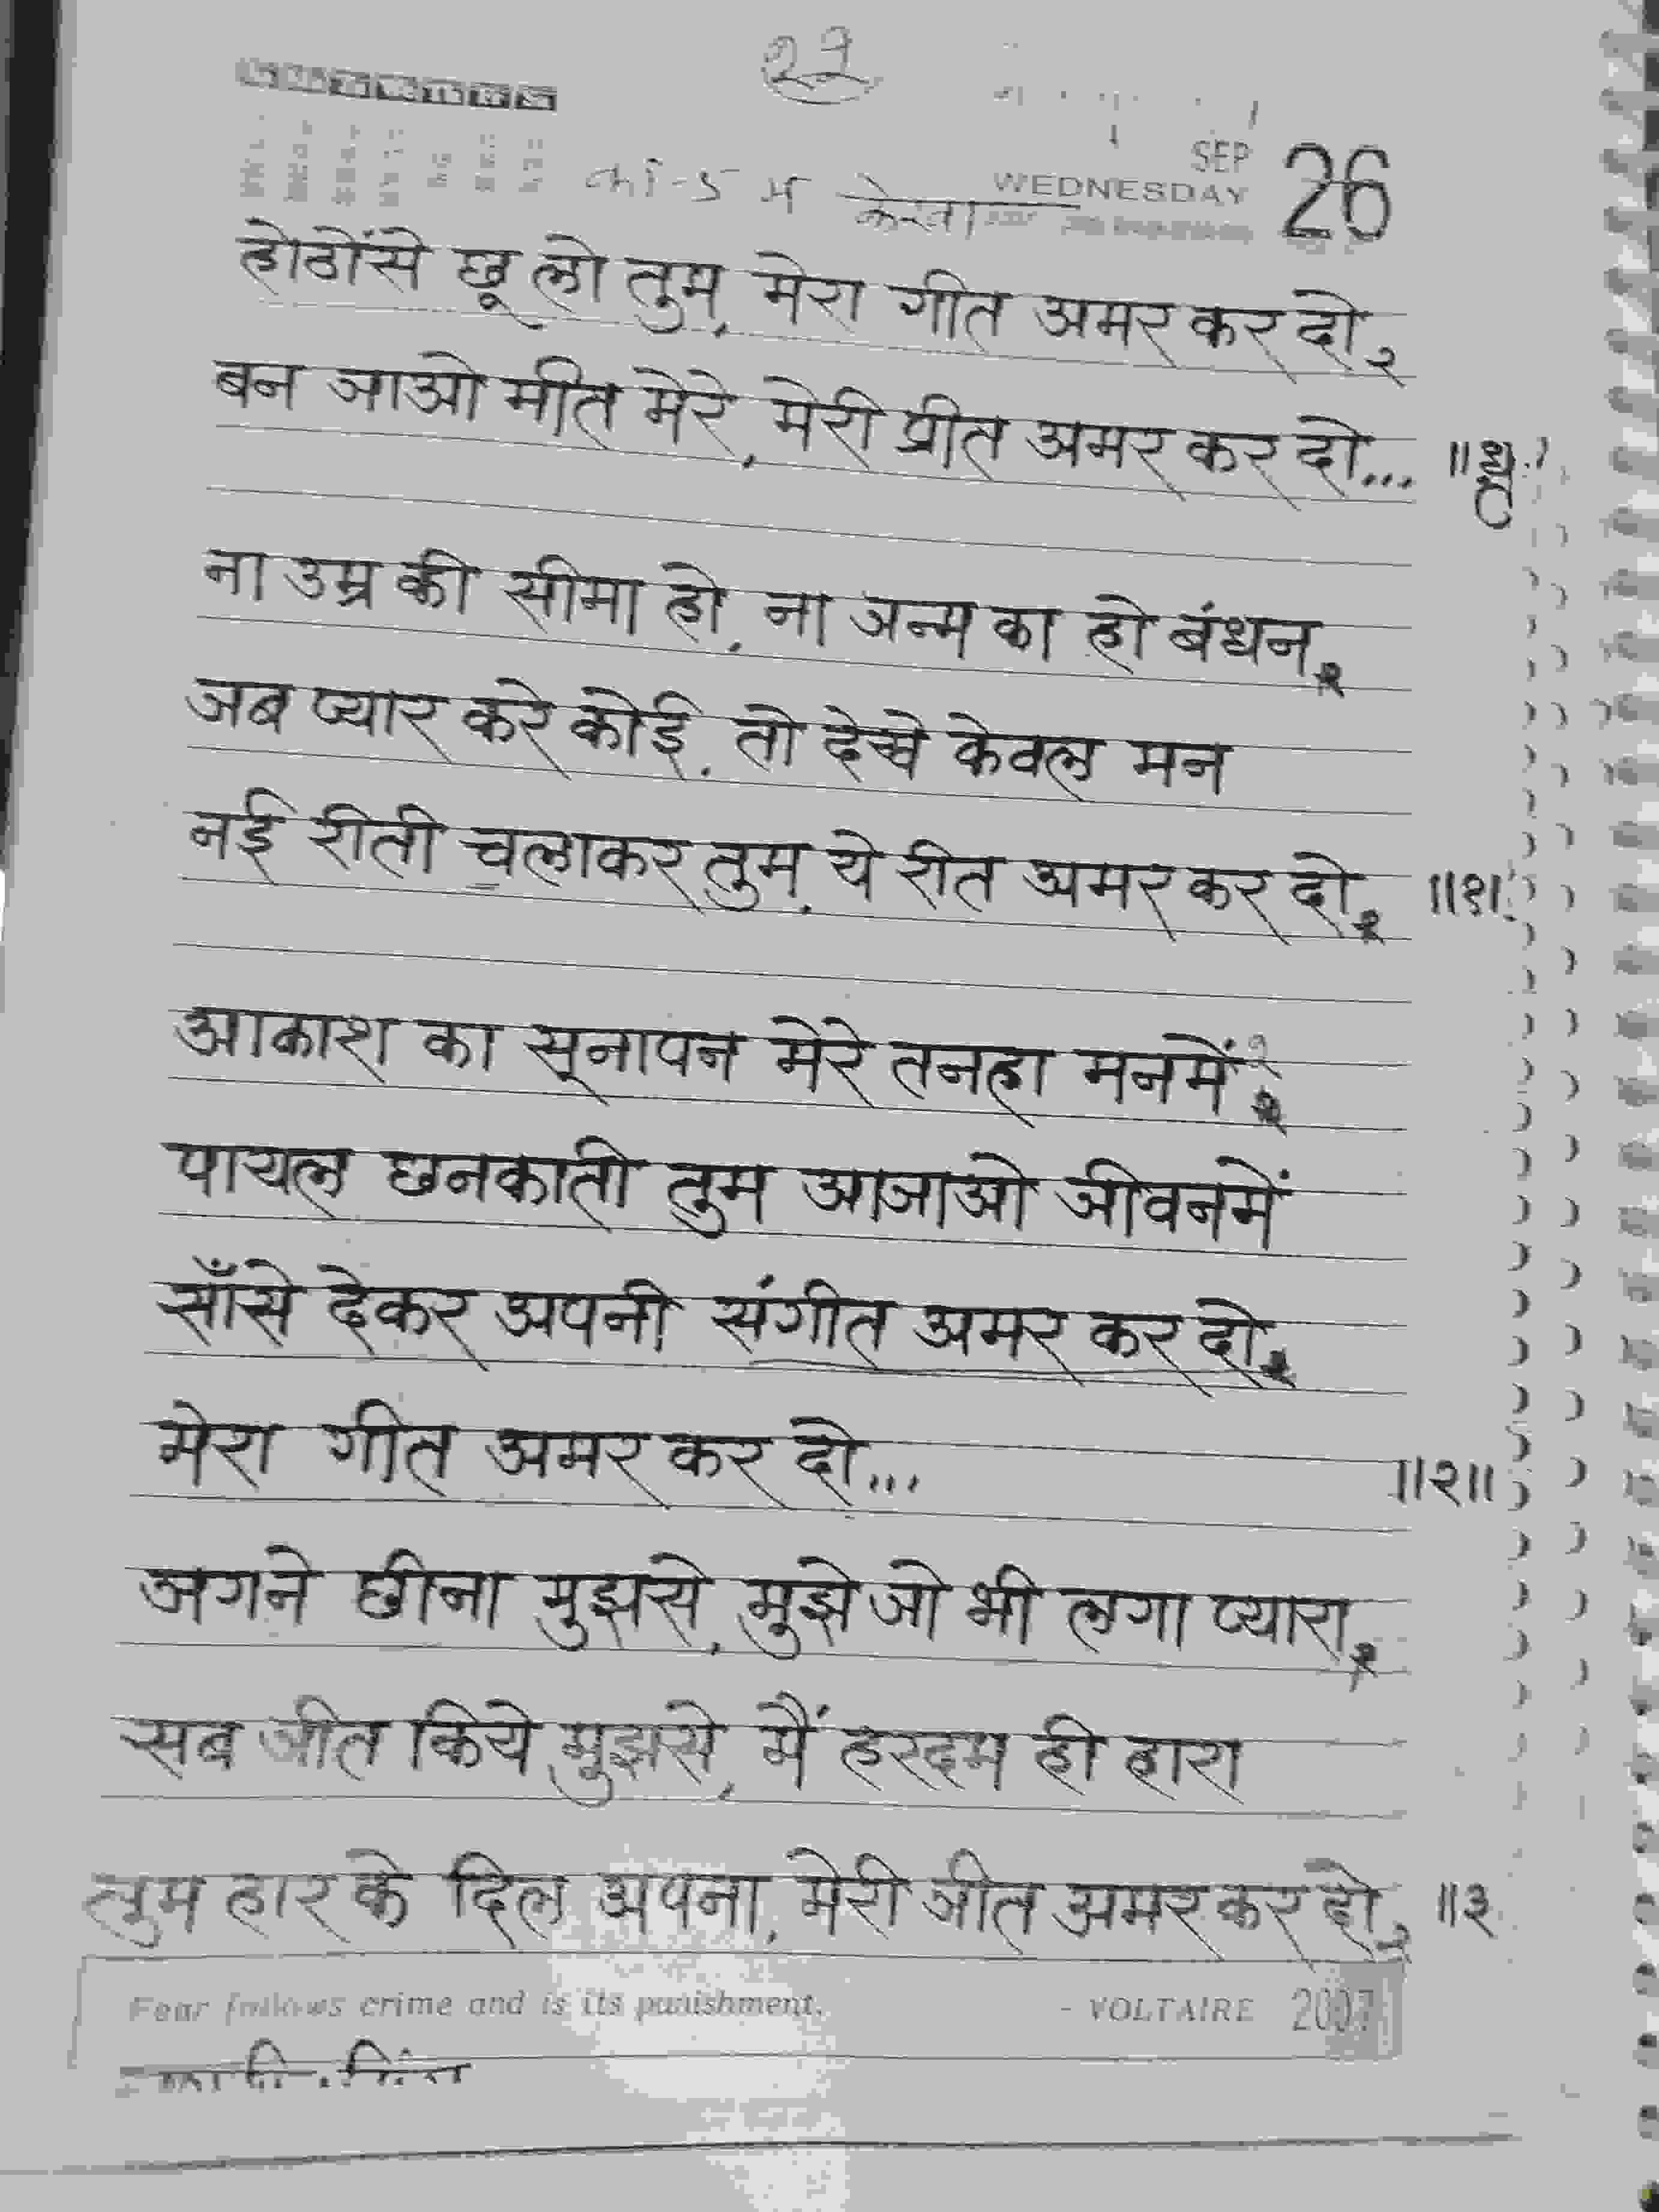 २७
SEP 26
WEDNESDAY
होठोंसे छू लो तुम, मेरा गीत अमर कर दो,२
बन जाओ मीत मेरे, मेरी प्रीत अमर कर दो... ॥धृ
ना उम्र की सीमा हो, ना जन्म का हो बंधन,२
जब प्यार करे कोई, तो देखे केवल मन
नई रीती चलाकर तुम, ये रीत अमर कर दो,२ ॥१॥
आकाश का सूनापन मेरे तनहा मनमें,२
पायल छनकाती तुम आजाओ जीवनमें
साँसे देकर अपनी संगीत अमर कर दो,२
मेरा गीत अमर कर दो... ॥२॥
जगने छीना मुझसे, मुझे जो भी लगा प्यारा,२
सब जीत किये मुझसे, मैं हरदम ही हारा
तुम हार के दिल अपना, मेरी जीत अमर कर दो,२ ॥३
Fear follows crime and is its punishment. - VOLTAIRE 2007